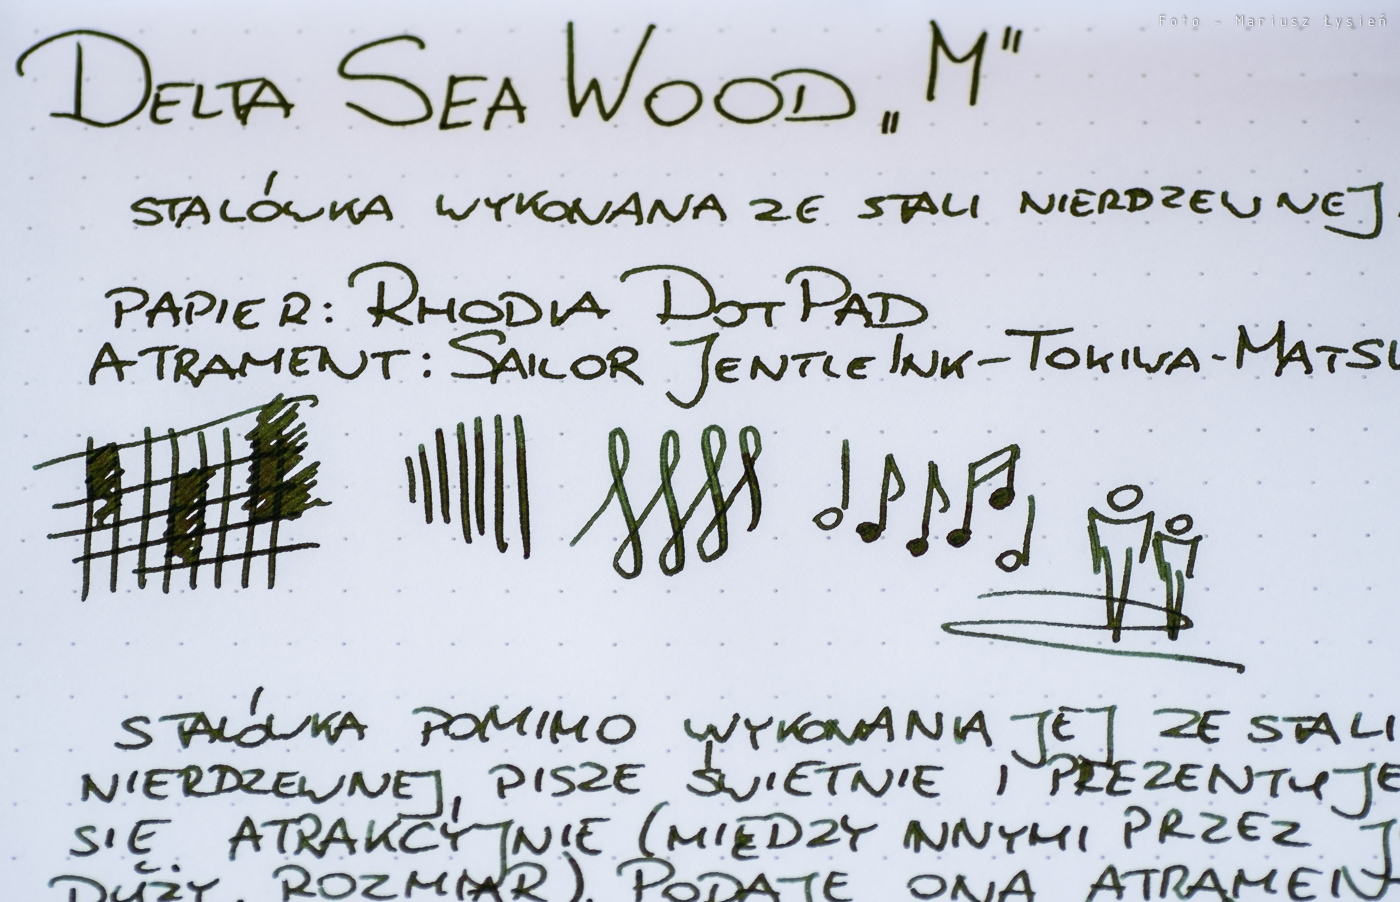 Foto - Mariusz Łysień
DELTA SEA WOOD „M"
STALÓWKA WYKONANA ZE STALI NIERDZEWNEJ
PAPIER: RHODIA DOT PAD
ATRAMENT: SAILOR JENTLE INK - TOKIWA - MATSU
STALÓWKA POMIMO WYKONANIA JEJ ZE STALI
NIERDZEWNEJ, PISZE ŚWIETNIE I PREZENTUJE
SIĘ ATRAKCYJNIE (MIĘDZY INNYMI PRZEZ J
DUŻY ROZMIAR). PODAJE ONA ATRAMENT